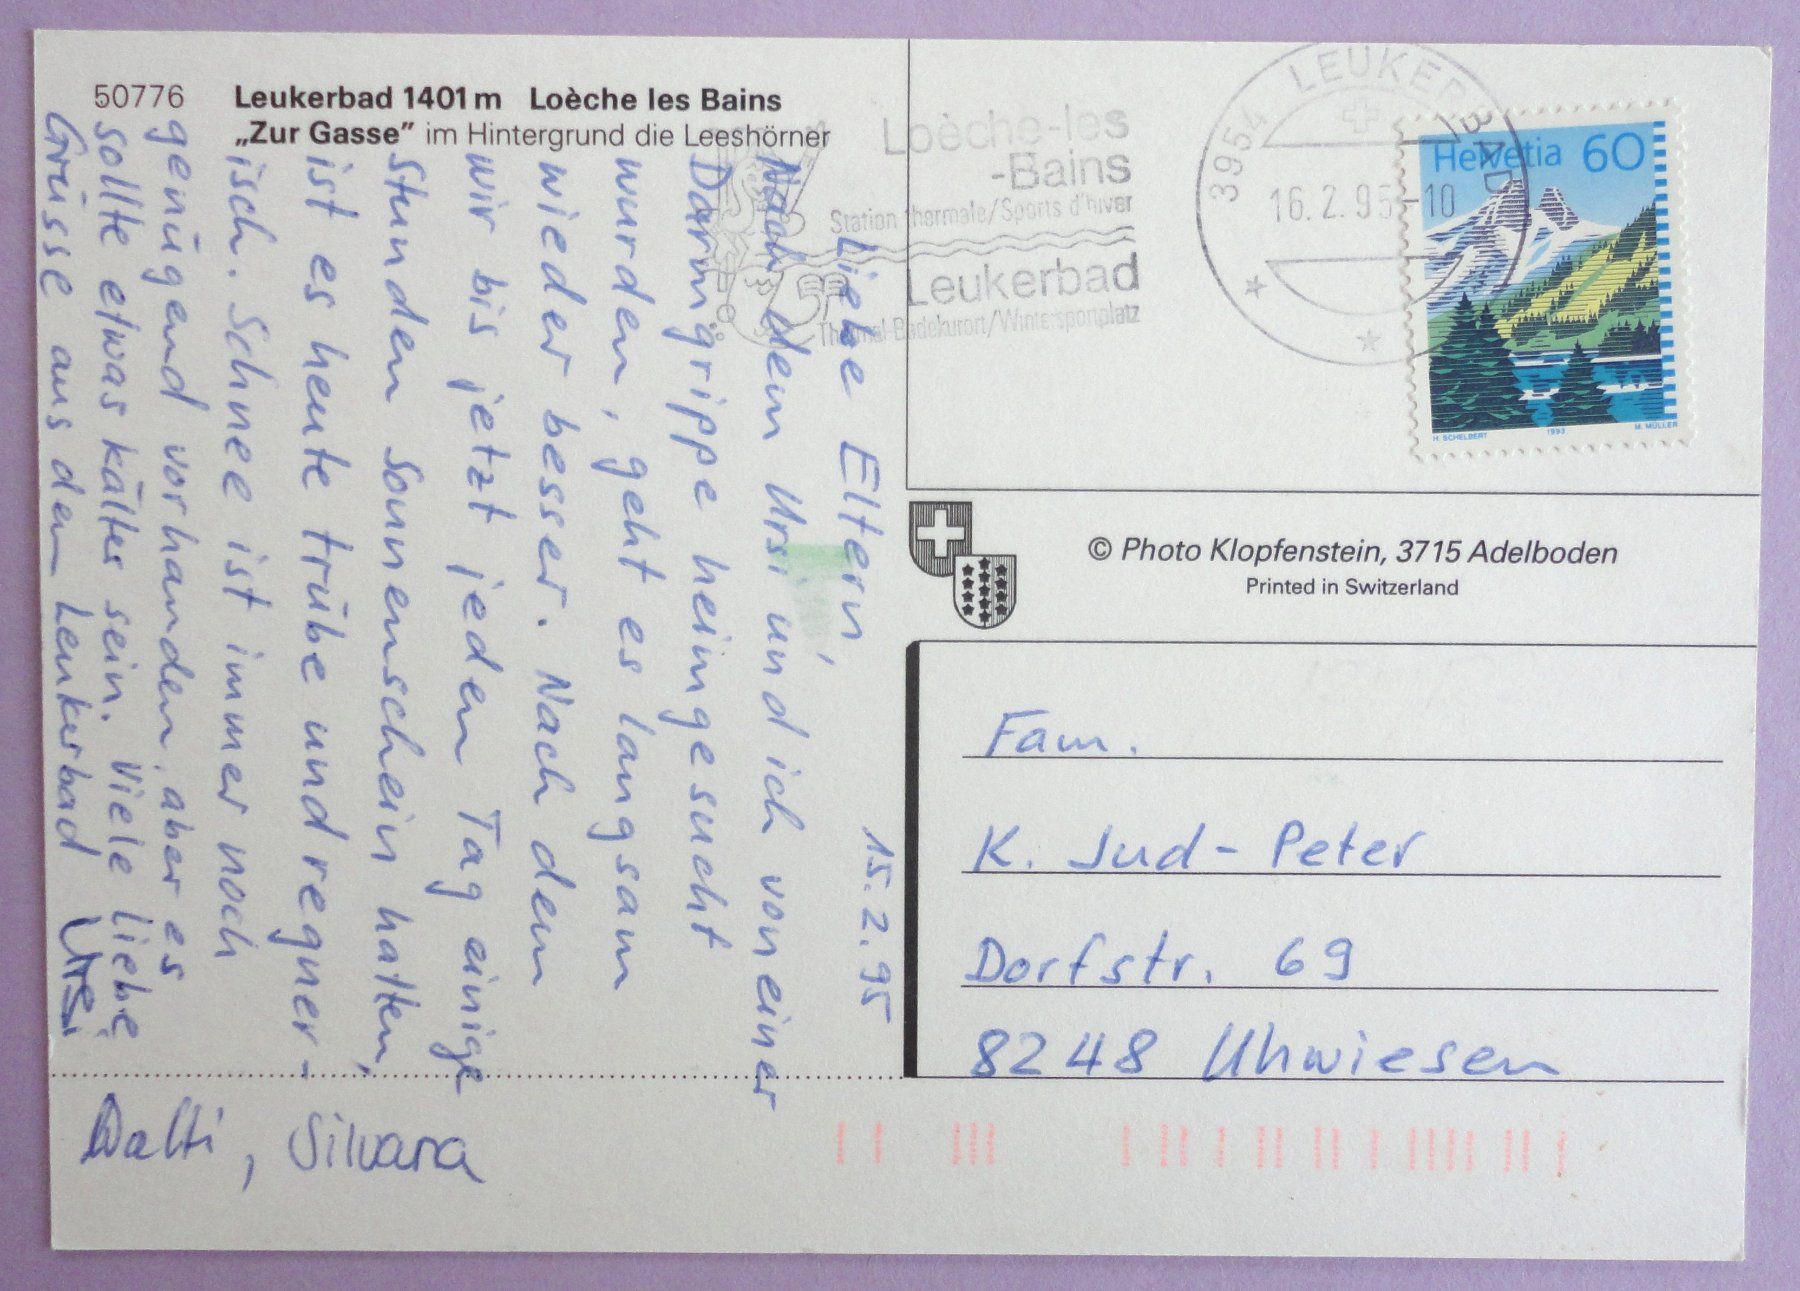 50776 Leukerbad 1401 m Loèche les Bains
„Zur Gasse” im Hintergrund die Leeshörner
15.2.95
Liebe Eltern,
Nach dem Ursi und ich von einer
Darmgrippe heimgesucht
wurden, geht es langsam
wieder besser. Nach dem
wir bis jetzt jeden Tag einige
Stunden Sonnenschein hatten,
ist es heute trübe und regner-
isch. Schnee ist immer noch
genügend vorhanden, aber es
sollte etwas kälter sein. Viele liebe
Grüsse aus dem Leukerbad Ursi
Walti, Silvana
Loèche-les
-Bains
Station thermale/Sports d'hiver
Leukerbad
Thermal-Badekurort/Wintersportplatz
3954 LEUKERBAD
16.2.95-10
Helvetia 60
H. SCHELBERT 1993 M. MÜLLER
© Photo Klopfenstein, 3715 Adelboden
Printed in Switzerland
Fam.
K. Jud-Peter
Dorfstr. 69
8248 Uhwiesen